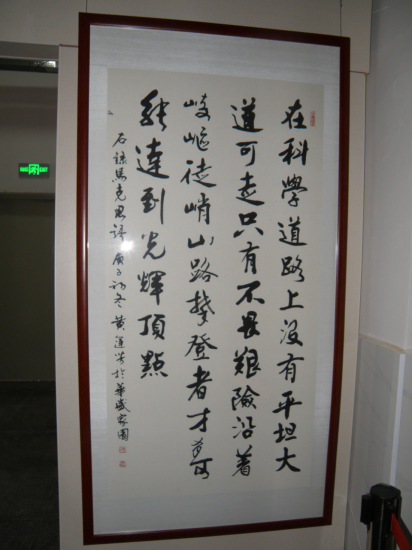 在科學道路上没有平坦大
道可走只有不畏艱險沿着
岐嶇陡峭山路攀登者才有可
能達到光輝頂點
右錄馬克思語庚子初冬黄於華盛家園